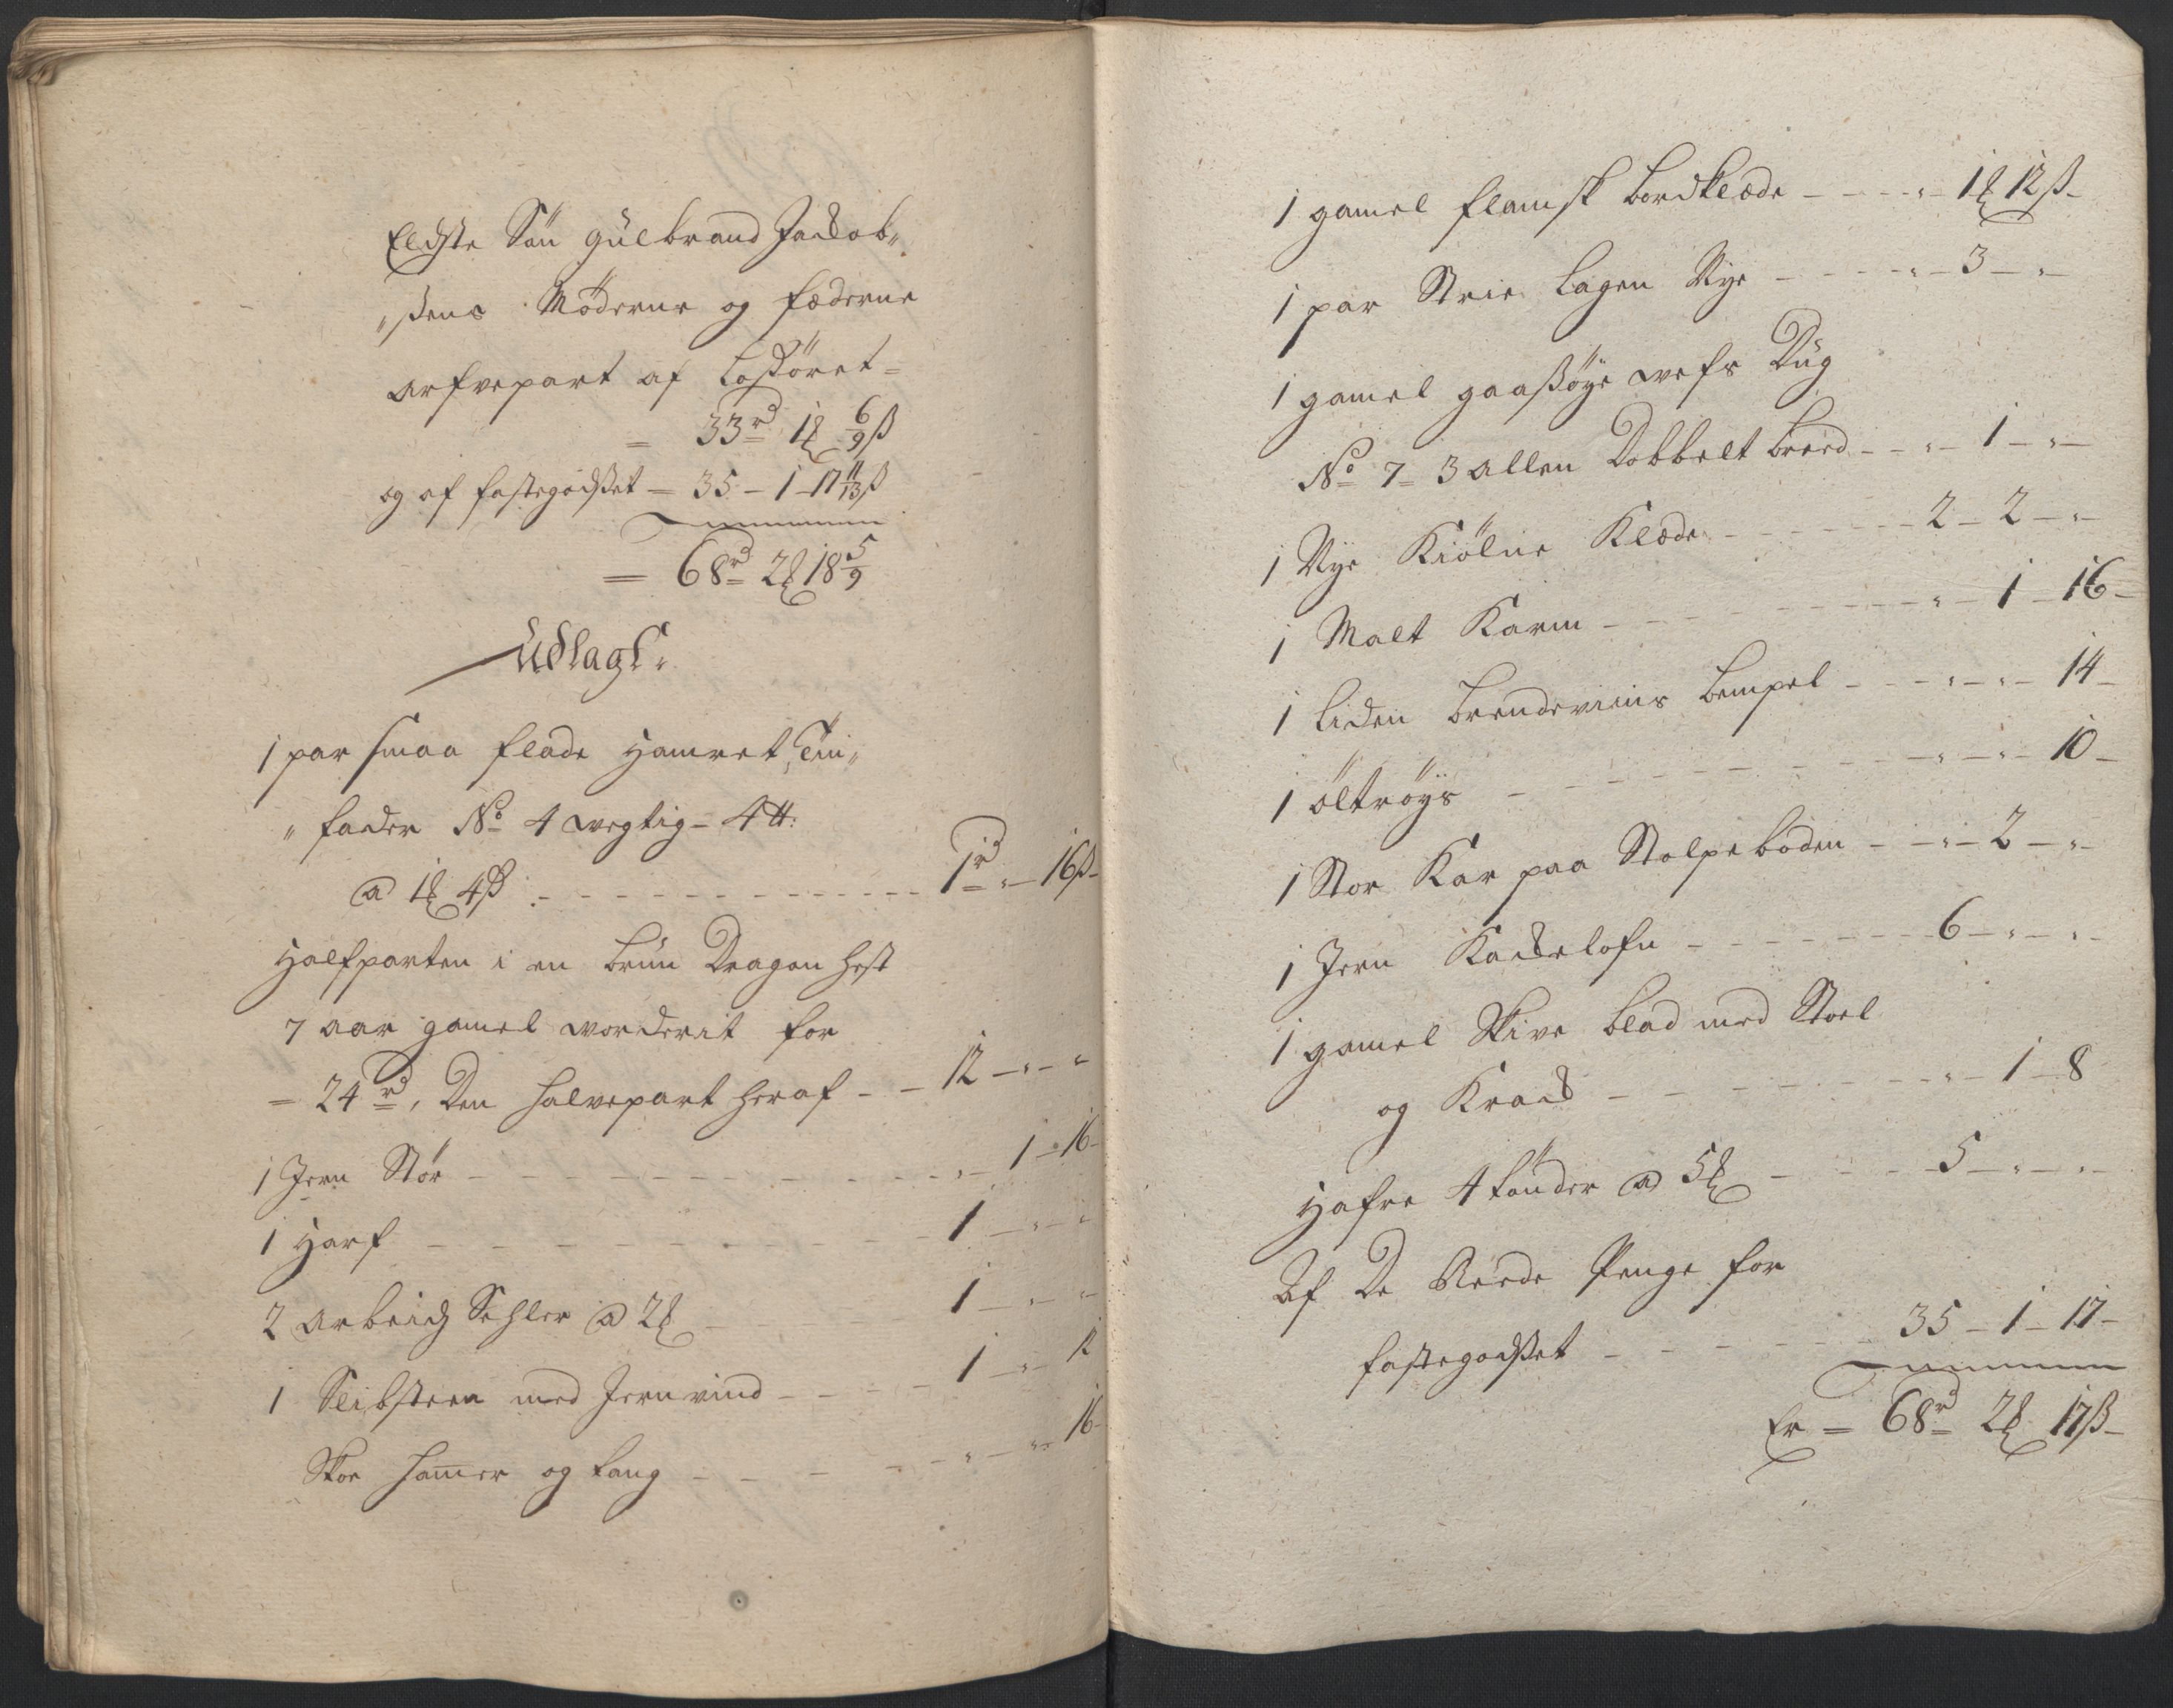 Eldste Sön Gülbrand Jackob„
„sens Möderne og fæderne
arfvepart af Lossöret =
= 33rd 1 6/9 ß
og af fastegodset = 35 – 1 – 17 11/13 ß
= 68rd 2 18 5/9
Udlagt.
1 par smaa flade hamret Tin„
„fader No 4 wegtig – 4 tt:
a 1 4ß – – – 1rd „ – 16ß –
Halfparten i en brün Dragon hest
7 aar gamel worderit for
= 24rd, Den halvepart heraf – – 12 – „ – „
1 Jern Stör – – – „ – 1 – 16 –
1 Harf – – – 1 – „ – „
2 arbeids Sehler a 2 – – – 1 – „ – „
1 Slibsteen med Jernvind – – – 1 – „ – 12
Skoe hammer og tang – – – „ – „ – 16 –
1 gamel flamsk bordklæde – – – „ – 1 12ß –
1 par Strie Lagen Nye – – – „ – 3 – „ –
1 gamel gaasöye wefs Düg
No 7 = 3 allen Dobbelt breed – – „ – 1 – „ –
1 Nye Kiölne Klæde – – – 2 – 2 – „ –
1 Malt Karm – – – „ – 1 – 16 –
1 liden brendeviins bempel – – – „ – „ – 14 –
1 öltröys – – – „ – „ – 10 –
1 Stor Kar paa Stolpeboden – – „ – 2 – „ –
1 Jern Kackelofn – – – 6 – „ – „ –
1 gamel Skive blad med Stoel
og Krack – – – „ – 1 – 8
Hafre 4 tönder a 5 – – – 5 – „ – „ –
Af De Reede Penge for
fastegodset – – – 35 – 1 – 17 –
Er = 68rd 2 17ß –